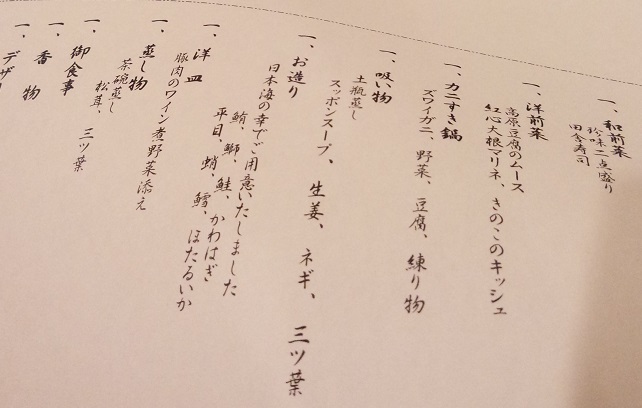 一、和前菜
珍味二点盛り
田舎寿司
一、洋前菜
高原豆腐のムース
紅心大根マリネ、きのこのキッシュ
一、カニすき鍋
ズワイガニ、野菜、豆腐、練り物
一、吸い物
土瓶蒸し
スッポンスープ、生姜、ネギ、三ツ葉
一、お造り
日本海の幸でご用意いたしました
鮪、鰤、鮭、かわはぎ
平目、蛸、鱈、ほたるいか
一、洋皿
豚肉のワイン煮野菜添え
一、蒸し物
茶碗蒸し
松茸、三ツ葉
一、御食事
一、香物
一、デザ